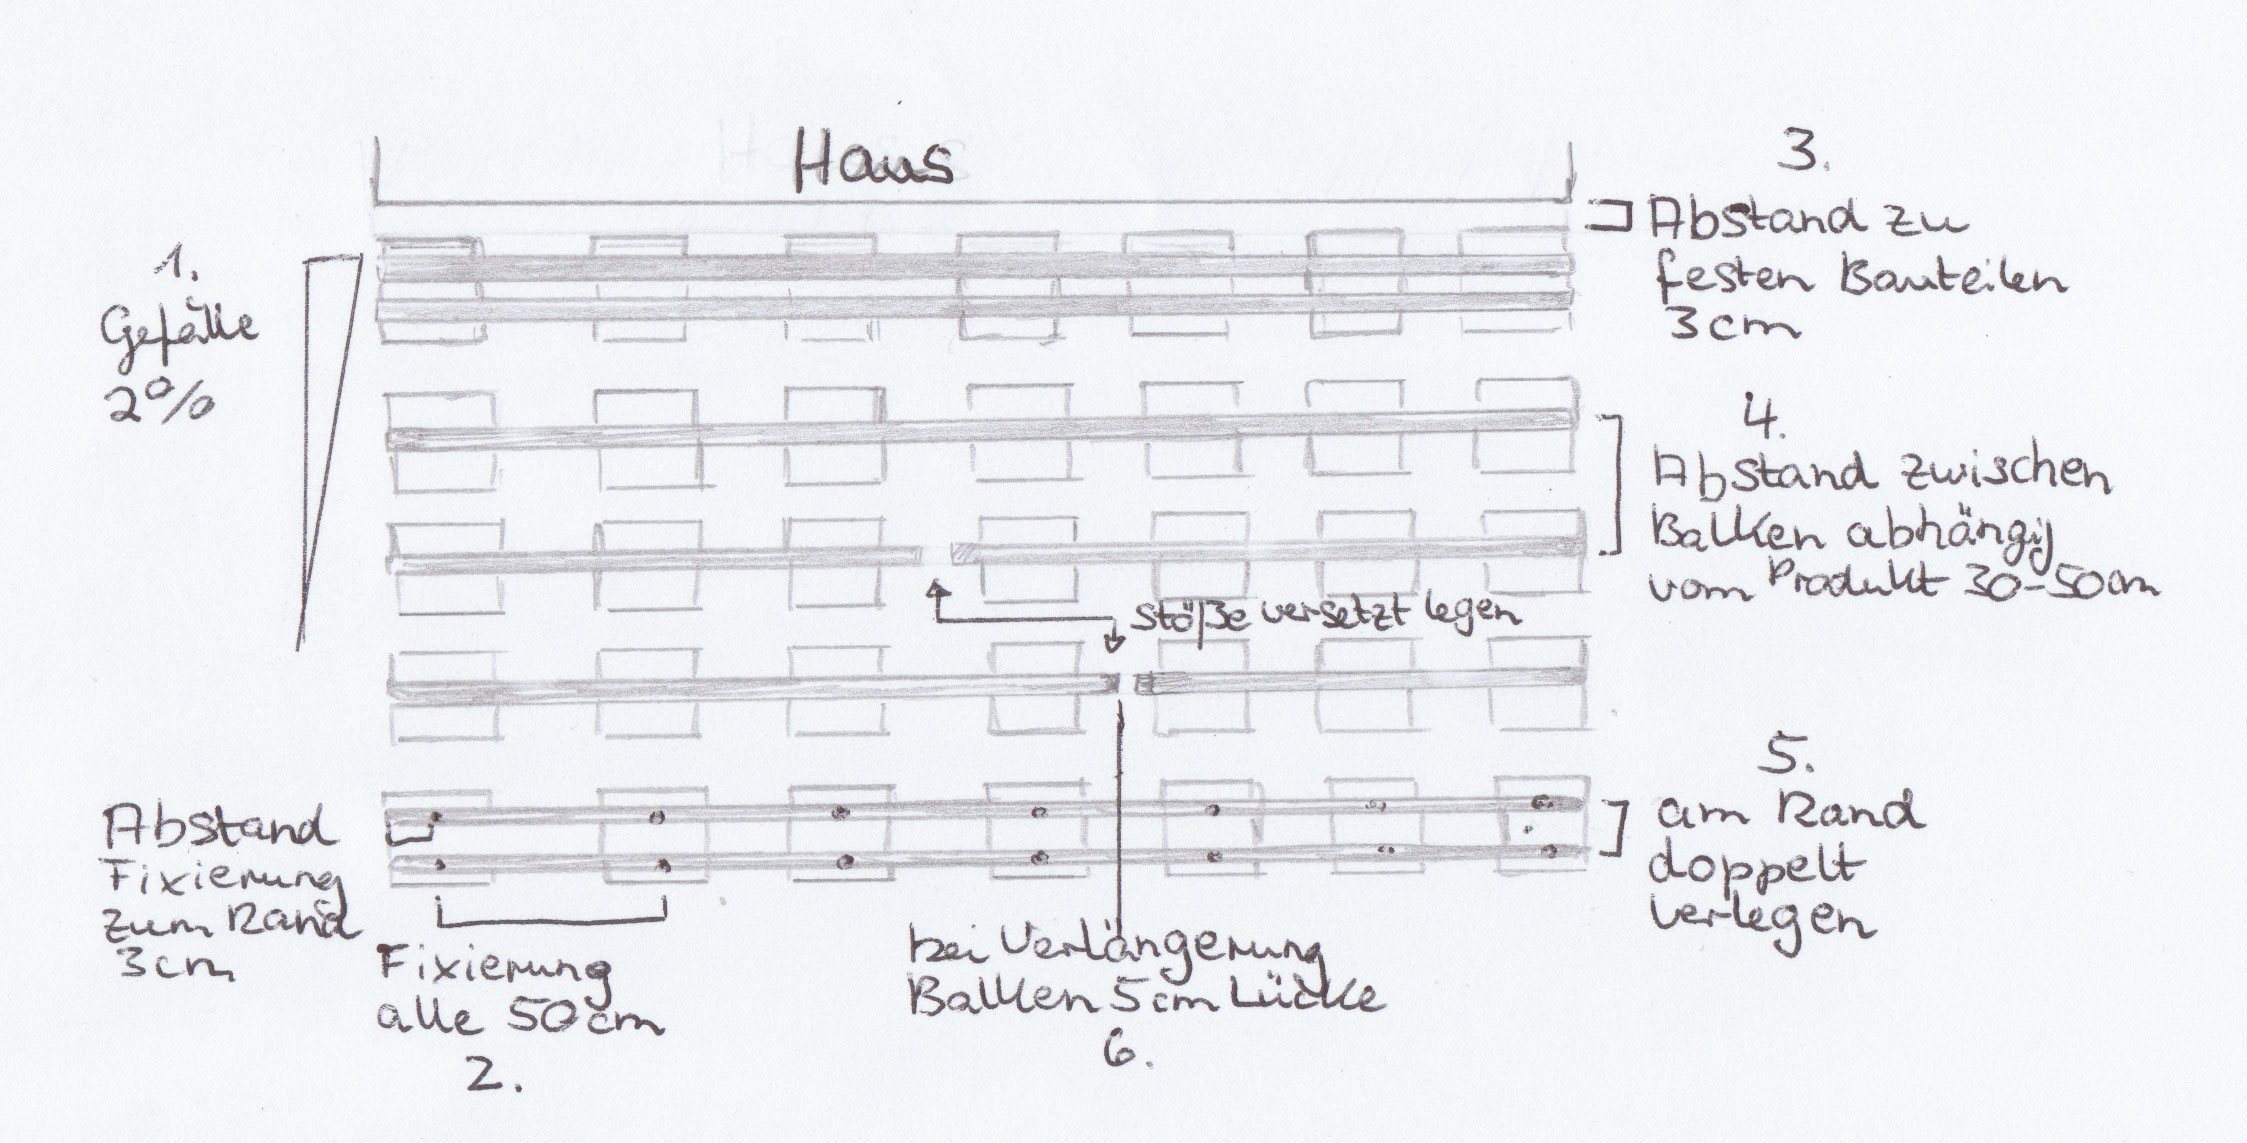 Haus
1.
Gefälle
2%
3.
Abstand zu
festen Bauteilen
3cm
4.
Abstand zwischen
Balken abhängig
vom Produkt 30-50cm
Stöße versetzt legen
5.
am Rand
doppelt
verlegen
Abstand
Fixierung
zum Rand
3cm
Fixierung
alle 50cm
2.
bei Verlängerung
Balken 5cm Lücke
6.